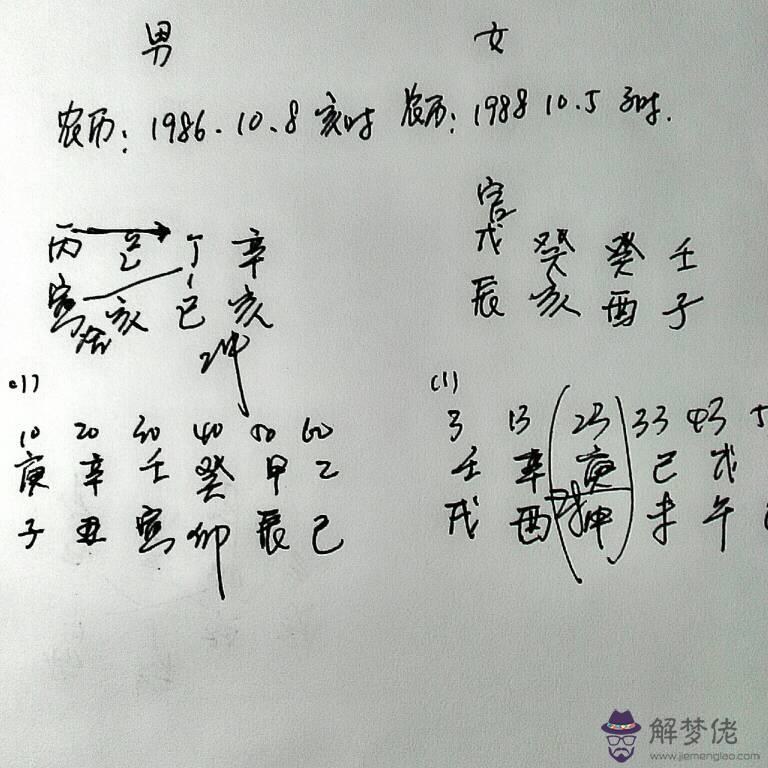 男 女
农历: 1986.10.8 亥时 农历: 1988 10.5 子时.
官
丙 己 丁 辛 戊 癸 癸 壬
寅 亥 巳 亥 辰 亥 酉 子
合
冲
(1) (1)
10 20 30 40 50 60 3 13 23 33 43
庚 辛 壬 癸 甲 乙 壬 辛 庚 己 戊
子 丑 寅 卯 辰 巳 戌 酉 申 未 午
解梦佬
www.jiemenglao.com